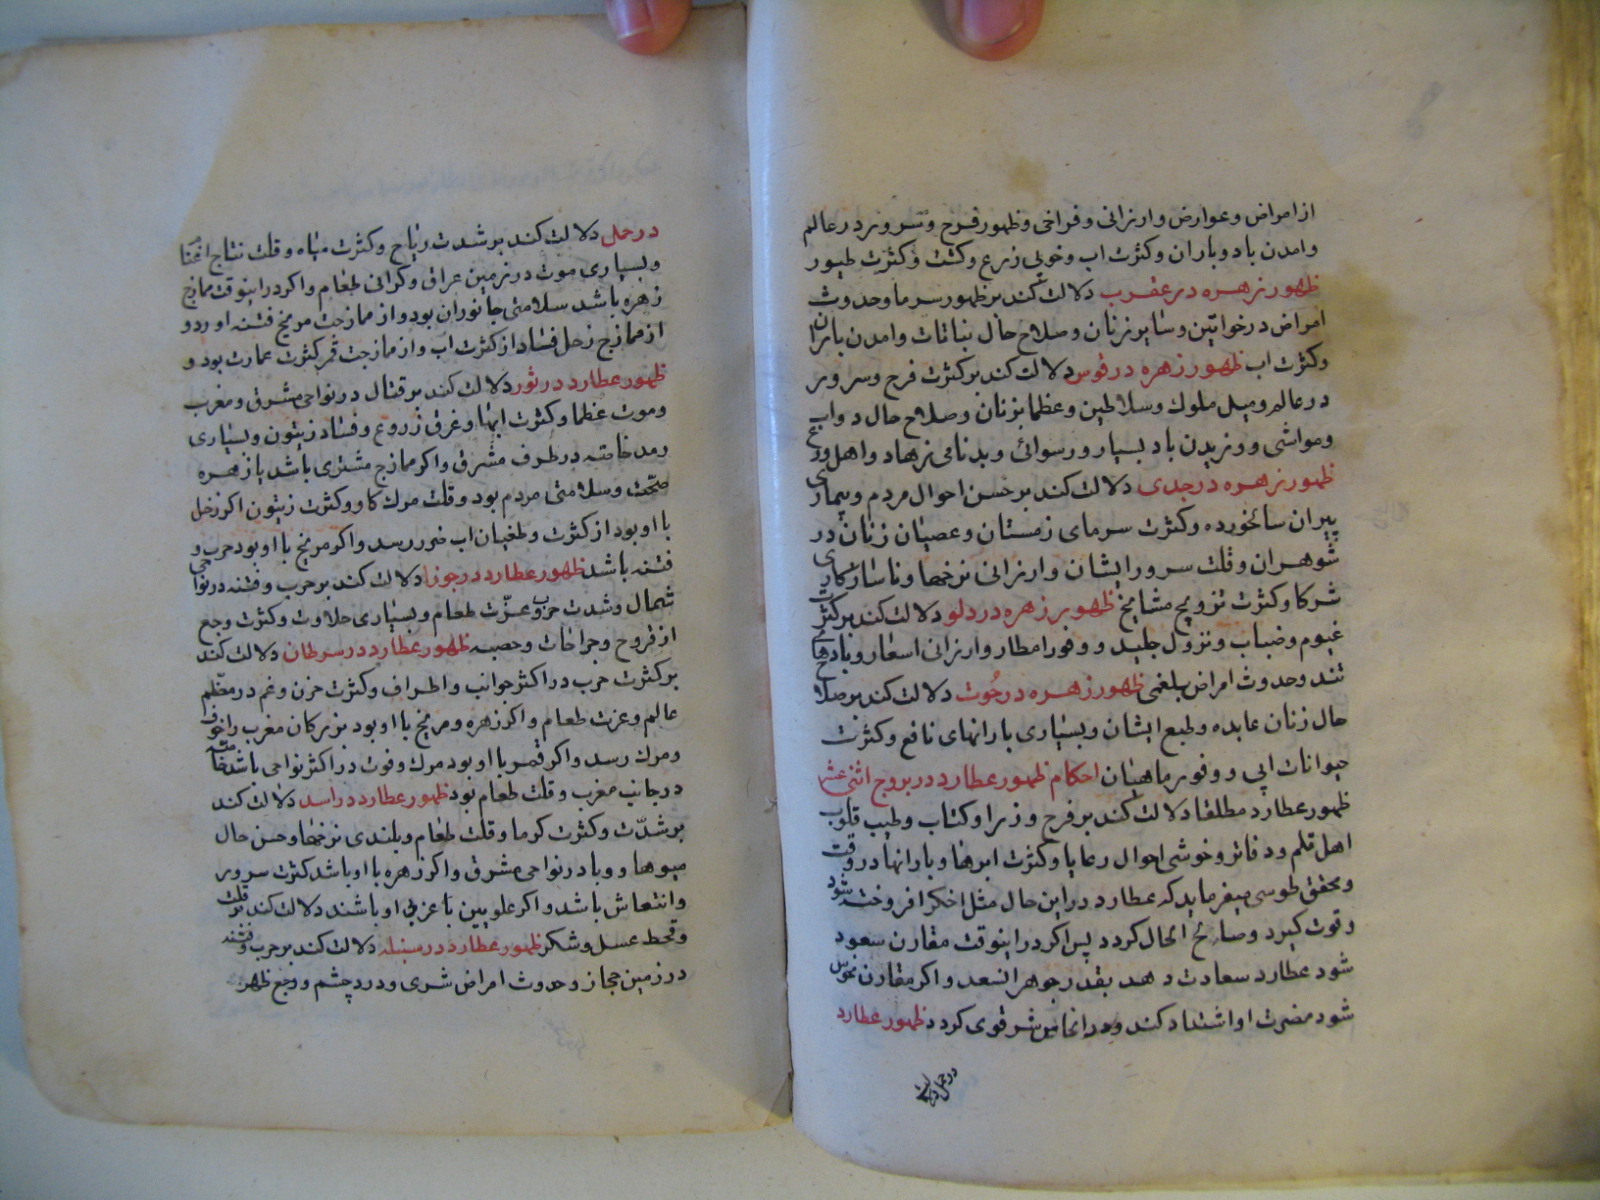 از امراض و عوارض و ارزانی و فراخی و ظهور فرح و سرور در عالم
و امدن باد و باران و کثرت اب و خوبی زرع و کشت و کثرت طیور
ظهور زهره در عقرب دلالت کند بر ظهور سرما و حدوث
امراض در خواتین و سایر زنان و صلاح حال نباتات و امدن باران
و کثرت اب ظهور زهره در قوس دلالت کند بر کثرت فرح و سرور
در عالم و میل ملوک و سلاطین و عظما بزنان و صلاح حال دواب
و مواشی و وزیدن باد بسیار و رسوائی و بدنامی زهاد و اهل ورع
ظهور زهره در جدی دلالت کند بر حسن احوال مردم و بیماری
پیران سالخورده و کثرت سرمای زمستان و عصیان زنان در
شوهران و قلت سرور ایشان و ارزانی نرخها و ناسازکاری
شرکا و کثرت تزویج مشایخ ظهور زهره در دلو دلالت کند بر کثرت
غیوم و ضباب و نزول جلید و وفور امطار و ارزانی اسعار و بادهای
تند و حدوث امراض بلغمی ظهور زهره در حوت دلالت کند بر صلاح
حال زنان عابده و طبع ایشان و بسیاری بارانهای نافع و کثرت
حیوانات ابی و وفور ماهیان احکام ظهور عطارد در بروج اثنی عشر
ظهور عطارد مطلقا دلالت کند بر فرح وزرا و کتاب و طیب قلوب
اهل قلم و دفاتر و خوشی احوال رعایا و کثرت ابرها و بارانها در وقت
و محقق طوسی میفرماید که عطارد در این حال مثل اخکر افروخته شود
و قوت کیرد و صالح الحال کردد پس اکر در اینوقت مقارن سعود
شود عطارد سعادت دهد بقدر جوهر السعد و اکر مقارن نحوس
شود مضرت او اشتداد کند و در انحا بیشتر قوی کردد ظهور عطارد
در حمل دلالت
در حمل دلالت کند بر شدت ریاح و کثرت میاه و قلت نتاج اغنام
و بسیاری موت در زمین عراق و کرانی طعام و اکر در اینوقت ممازج
زهره باشد سلامتی جانوران بود و از ممازجت مریخ فتنه اورد و
از ممازج زحل فساد از کثرت اب و از ممازجت قمر کثرت عمارت بود و
ظهور عطارد در ثور دلالت کند بر قتال در نواحی مشرق و مغرب
و موت عظما و کثرت ابها و غرق زروع و فساد زیتون و بسیاری
رمد خاصه در طرف مشرق و اکر ممازج مشتری باشد یا زهره
صحت و سلامتی مردم بود و قلت مرک کاو و کثرت زیتون اکر زحل
با او بود از کثرت و طغیان اب ضرر رسد و اکر مریخ با او بود حرب و
فتنه باشد ظهور عطارد در جوزا دلالت کند بر حرب و فتنه در نواحی
شمال و شدت حرب و عزت طعام و بسیاری حلاوت و کثرت وجع
از قروح و جراحات و حصبه ظهور عطارد در سرطان دلالت کند
بر کثرت حرب در اکثر جوانب و اطراف و کثرت حزن و غم در معظم
عالم و عزت طعام و اکر زهره و مریخ با او بود بزرکان مغرب را خوف
و مرک رسد و اکر قمر با او بود مرک و فوت در اکثر نواحی باشد خاصه
در جانب مغرب و قلت طعام بود ظهور عطارد در اسد دلالت کند
بر شدت و کثرت کرما و قلت طعام و بلندی نرخها و حسن حال
میوها و وبا در نواحی مشرق و اکر زهره با او باشد کثرت سرور
و انتعاش باشد و اکر علویین یا عزبی او باشند دلالت کند بر قلت
و قحط عسل و شکر ظهور عطارد در سنبله دلالت کند بر حرب و فتنه
در زمین حجاز و حدوث امراض شری و درد چشم و وجع ظهر